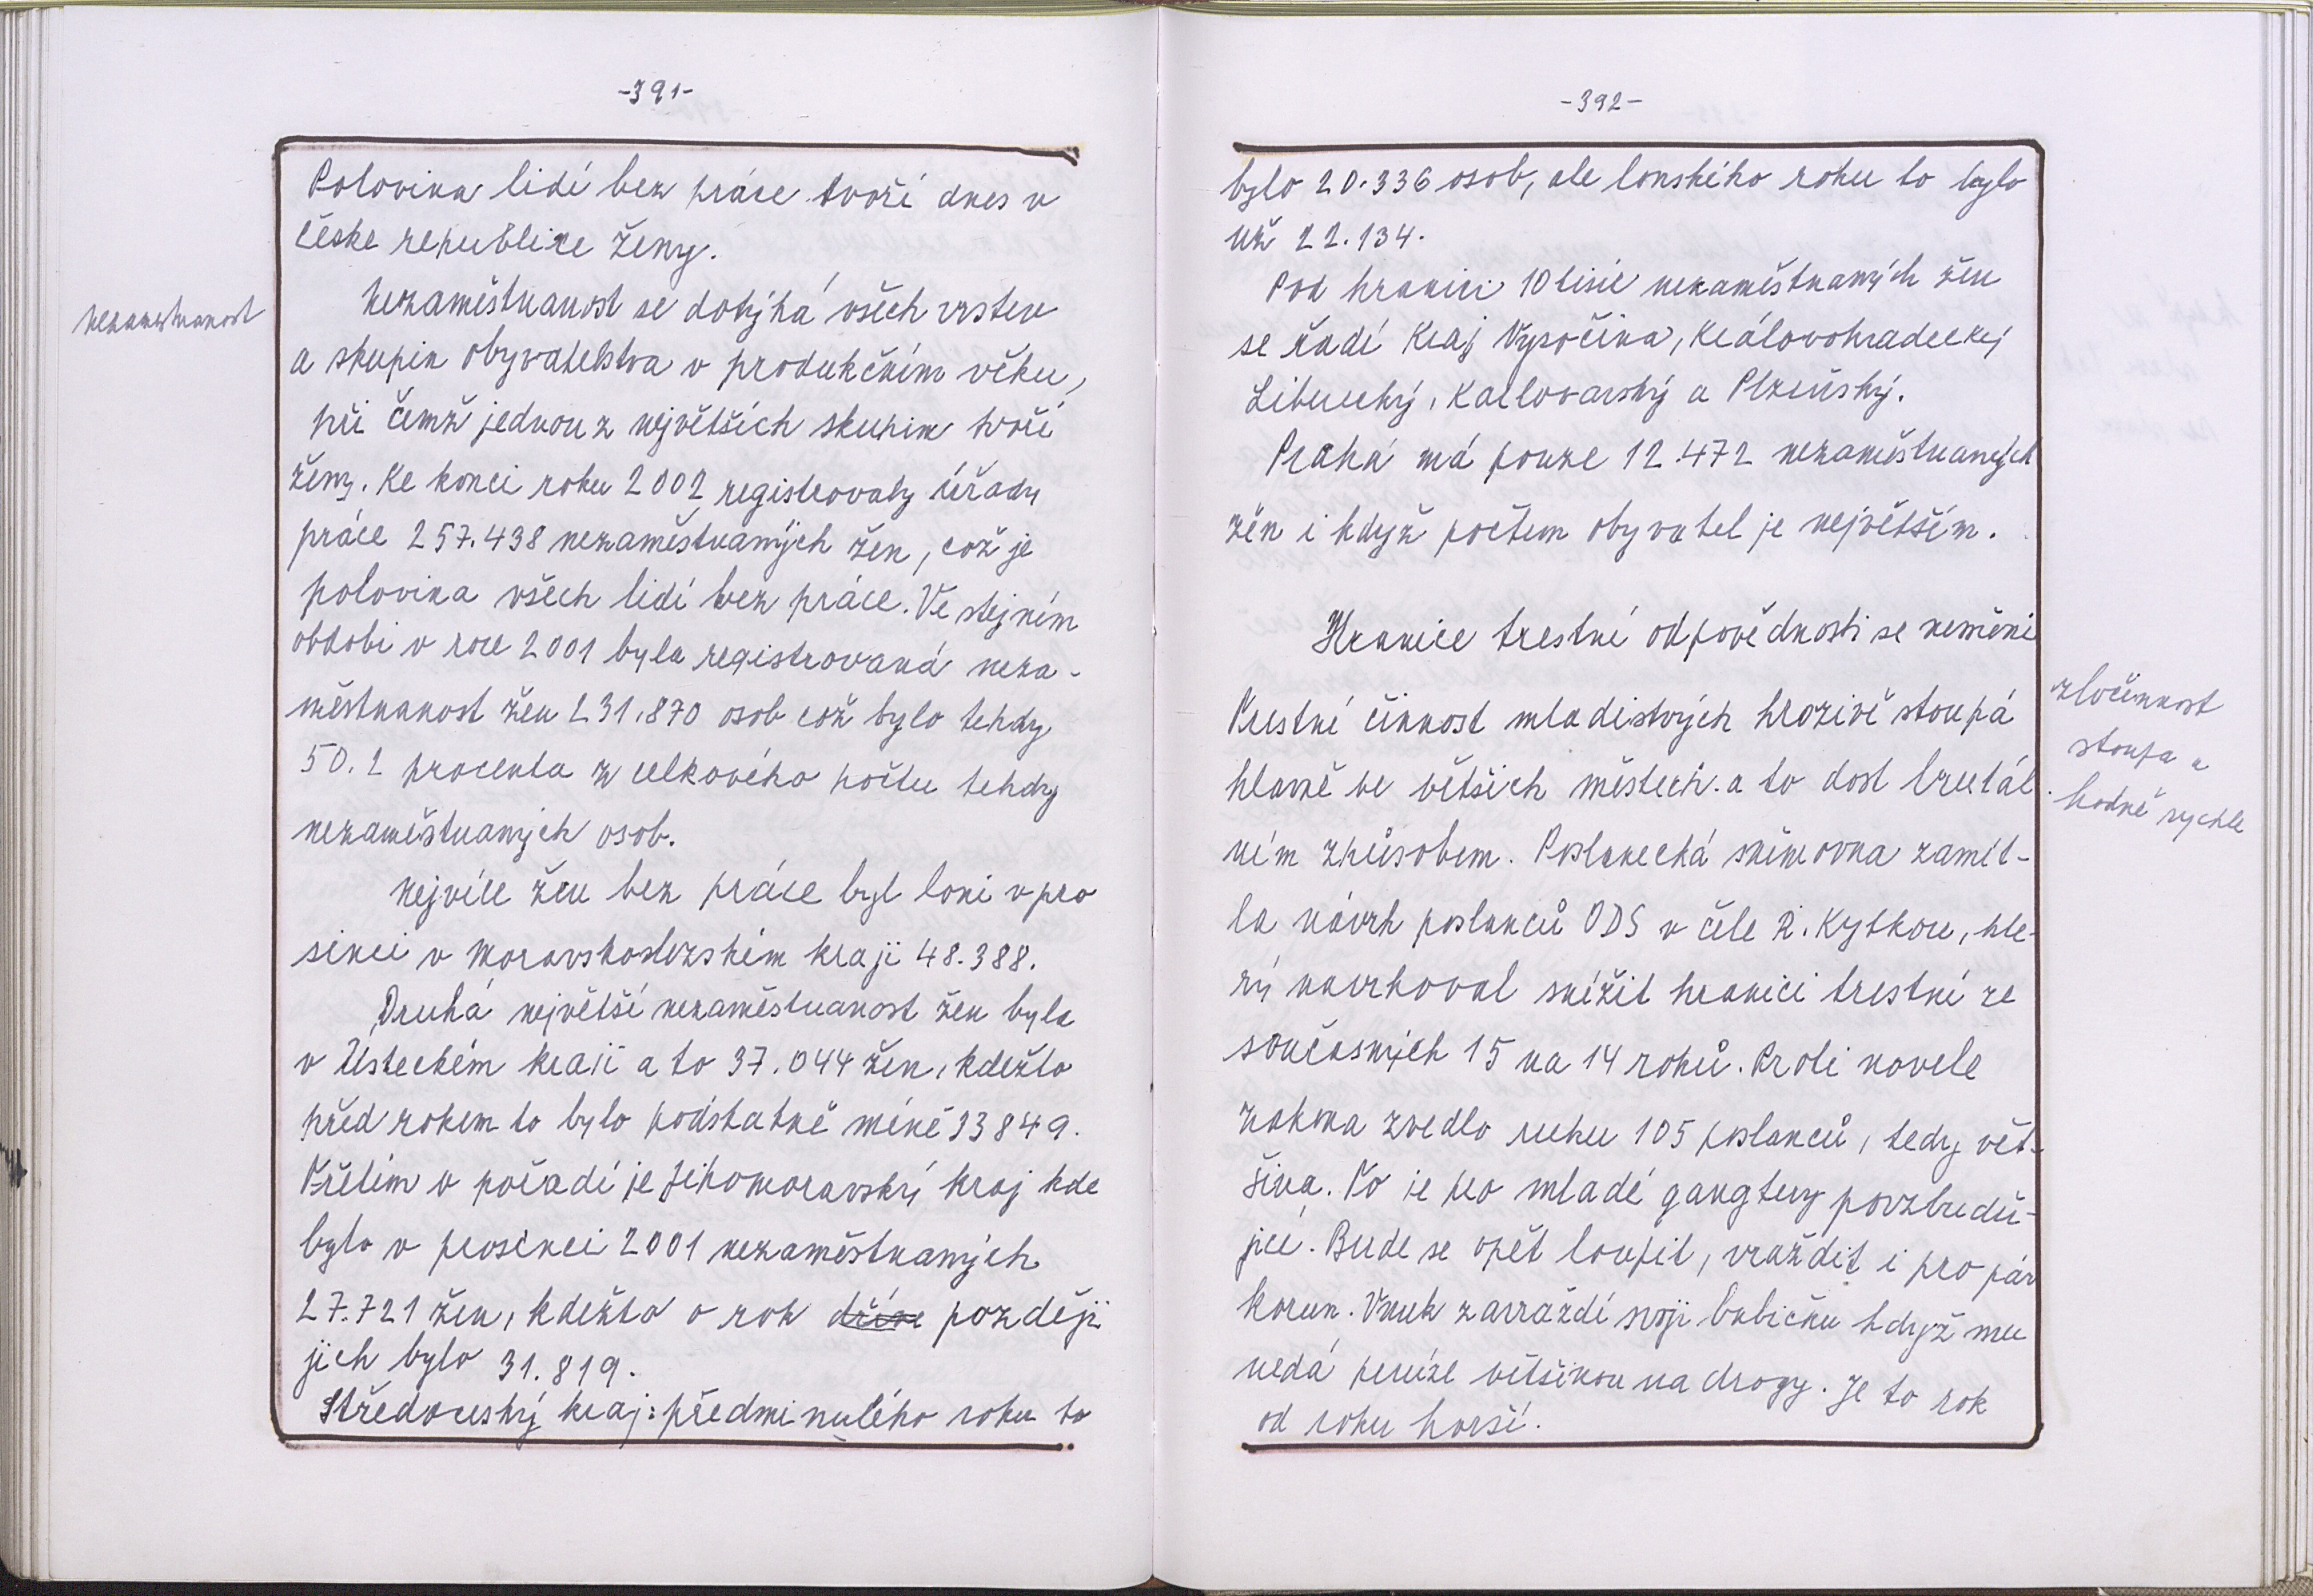 -391-
Polovina lidí bez práce tvoří dnes v
české republice ženy.
nezaměstnanost
Nezaměstnanost se dotýká všech vrstev
a skupin obyvatelstva v produkčním věku,
při čemž jednou z největších skupin tvoří
ženy. Ke konci roku 2002 registrovaly úřady
práce 257.438 nezaměstnaných žen, což je
polovina všech lidí bez práce. Ve stejném
období v roce 2001 byla registrovaná neza-
městnanost žen 231.870 osob což bylo tehdy
50.2 procenta z celkového počtu tehdy
nezaměstnaných osob.
Nejvíce žen bez práce byl loni v pro
sinci v Moravskoslezském kraji 48.388.
Druhá největší nezaměstnanost žen byla
v Ústeckém kraji a to 37.044 žen, kdežto
před rokem to bylo podstatně méně 33849.
Třetím v pořadí je Jihomoravský kraj kde
bylo v prosinci 2001 nezaměstnaných
27.721 žen, kdežto o rok dříve později
jich bylo 31.819.
Středočeský kraj: předminulého roku to
-392-
bylo 20.336 osob, ale lonského roku to bylo
už 22.134.
Pod hranici 10 tisíc nezaměstnaných žen
se řadí Kraj Vysočina, Královohradecký
Liberecký, Karlovarský a Plzeňský.
Praha má pouze 12.472 nezaměstnaných
žen i když počtem obyvatel je největším.
Hranice trestní odpovědnosti se nemění
Trestní činnost mladistvých hrozivě stoupá
hlavně ve větších městech. a to dost brutál
ním způsobem. Poslanecká sněmovna zamít-
la návrh poslanců ODS v čele R. Kytkou, kte-
rý navrhoval snížit hranici trestní ze
současných 15 na 14 roků. Proti novele
zákona zvedlo ruku 105 poslanců, tedy vět-
šina. To je pro mladé gangtery povzbudu-
jící. Bude se opět loupit, vraždit i pro pár
korun. Vnuk zavraždí svoji babičku když mu
nedá peníze většinou na drogy. Je to rok
od roku horší.
zločinnost
stoupa a
hodně rychle